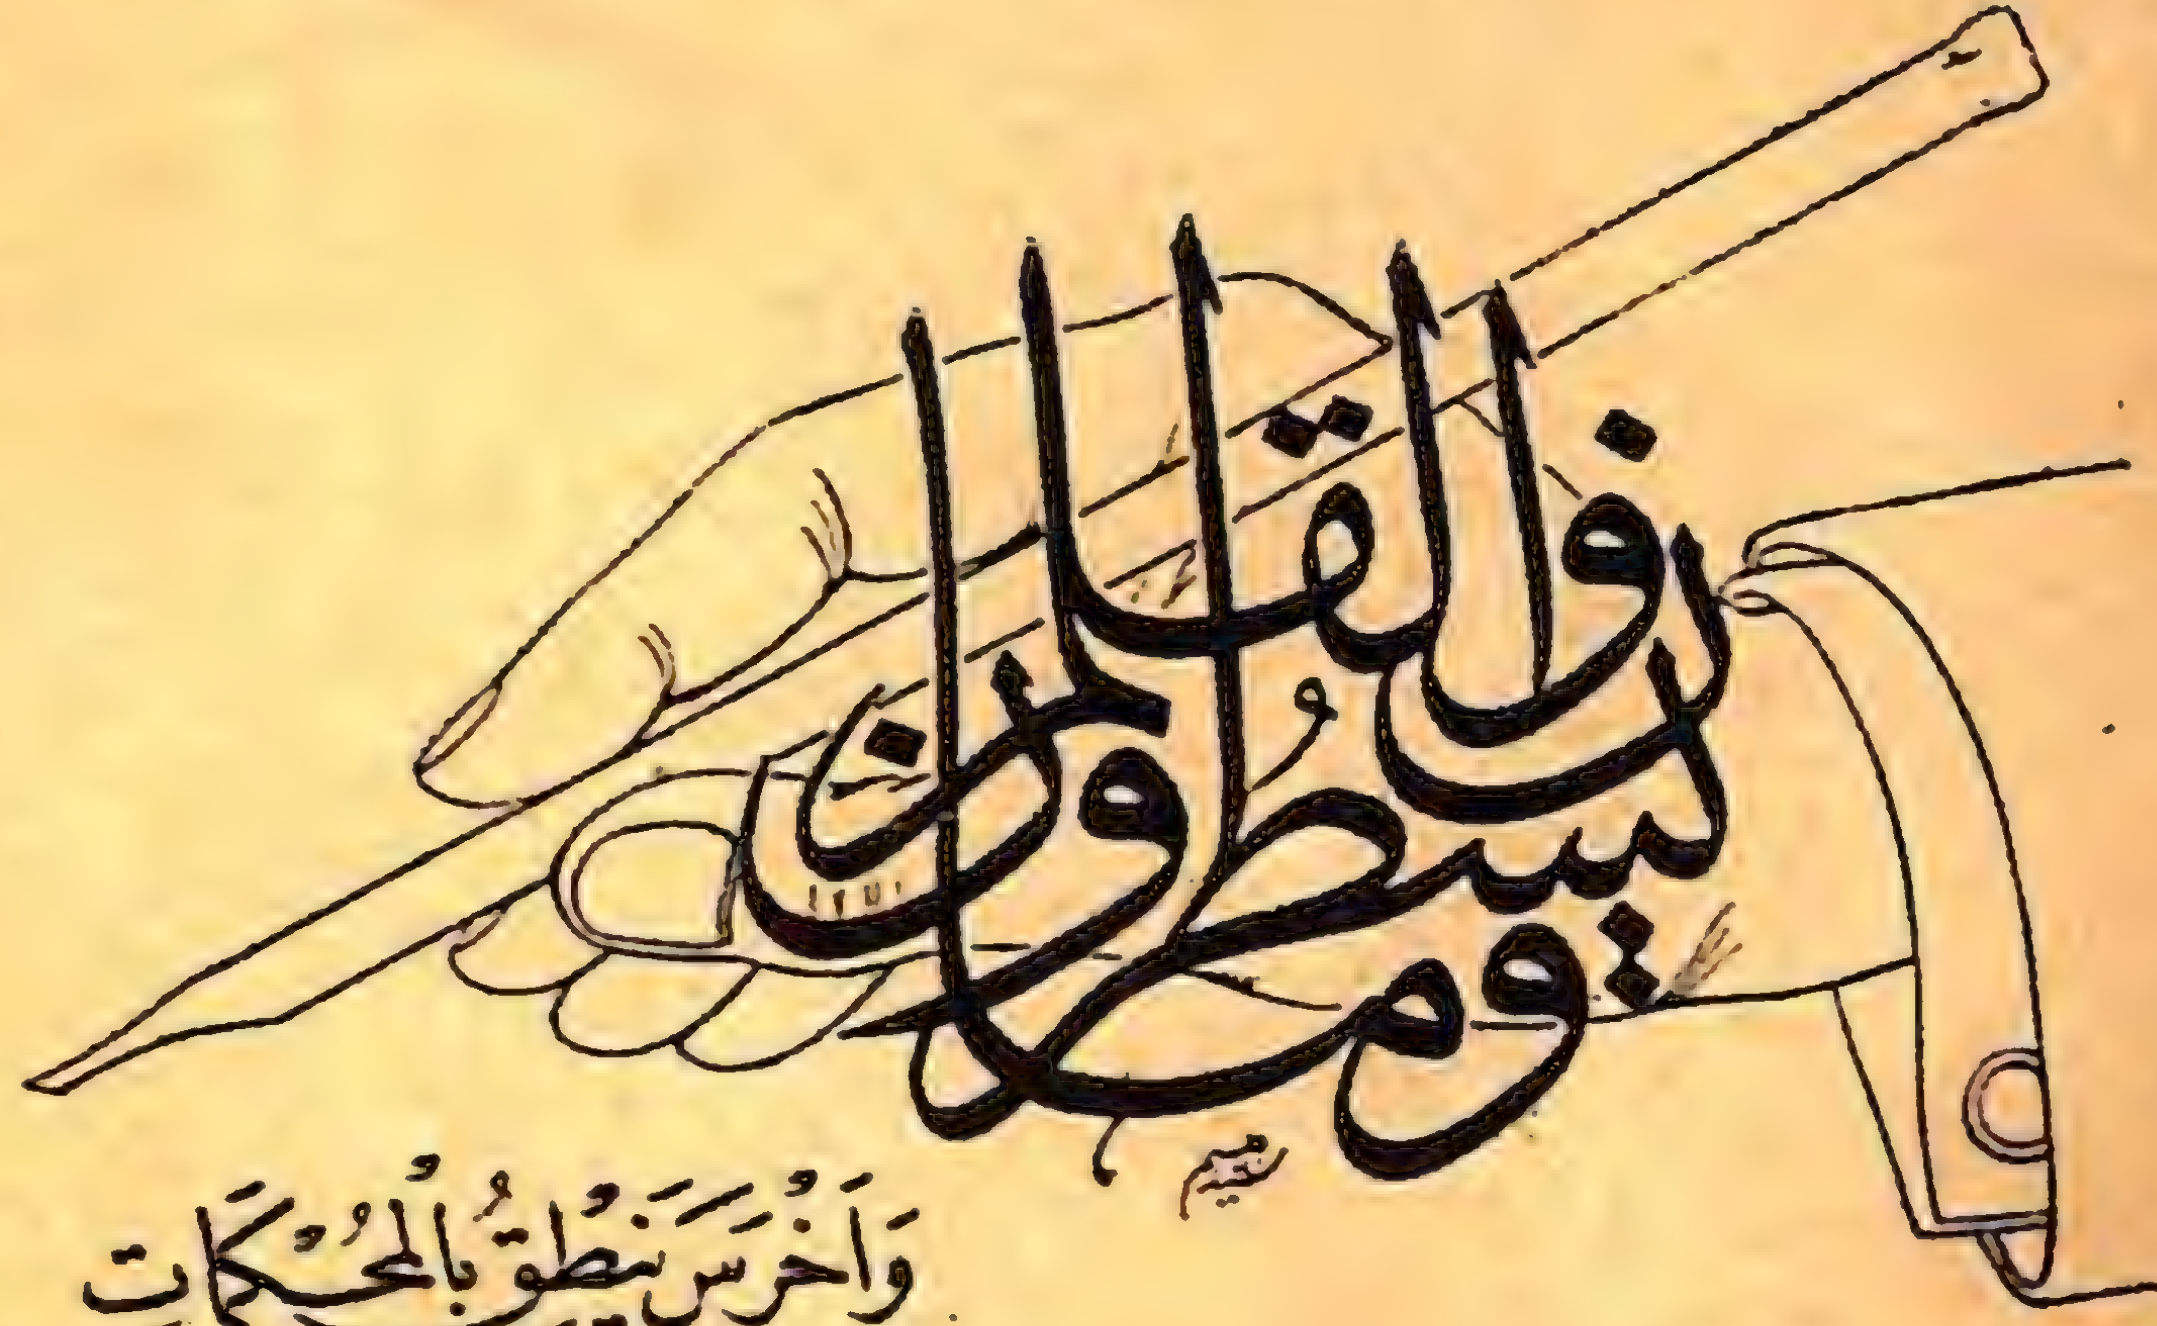 ن والقلم وما يسطرون
وَاَخْرَسَ يَنْطُقُ بِالْمُحْكَمَاتِ